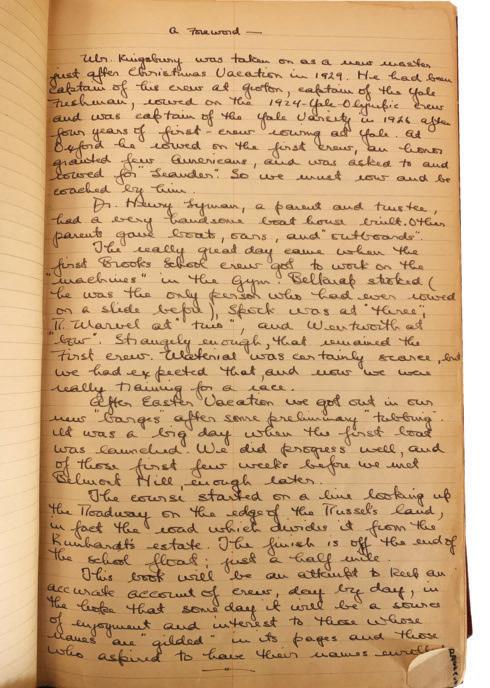 A Foreword —
Mr. Kingsbury was taken on as a new master
just after Christmas Vacation in 1929. He had been
captain of his crew at Groton, captain of the Yale
Freshman, rowed on the 1924-Yale-Olympic crew
and was captain of the Yale Varsity in 1926 after
four years of first-crew rowing at Yale. At
Oxford he rowed on the first crew, an honor
granted few Americans, and was asked to and
rowed for "Leander". So we must row and be
coached by him.
Dr. Henry Lyman, a parent and trustee,
had a very handsome boat house built. Other
parents gave boats, oars, and "outboards".
The really great day came when the
first Brooks School crew got to work on the
machines" in the Gym. Belknap stroked (
he was the only person who had ever rowed
on a slide before), Spock was at "three",
R. Marvel at "two", and Wentworth at
"bow". Strangely enough, that remained the
First crew. Material was certainly scarce, but
we had expected that, and now we were
really training for a race.
After Easter Vacation we got out in our
new "barges" after some preliminary "tubbing".
It was a big day when the first boat
was launched. We did progress well, and
of those first few weeks before we met
Belmont Hill, enough later.
The course started on a line looking up
the Roadway on the edge of the Russels land,
in fact the road which divides it from the
Kunhardts estate. The finish is off the end of
the school float; just a half mile.
This book will be an attempt to keep an
accurate account of crew, day by day, in
the hope that some day it will be a source
of enjoyment and interest to those whose
names are "gilded" in its pages and those
who aspired to have their names